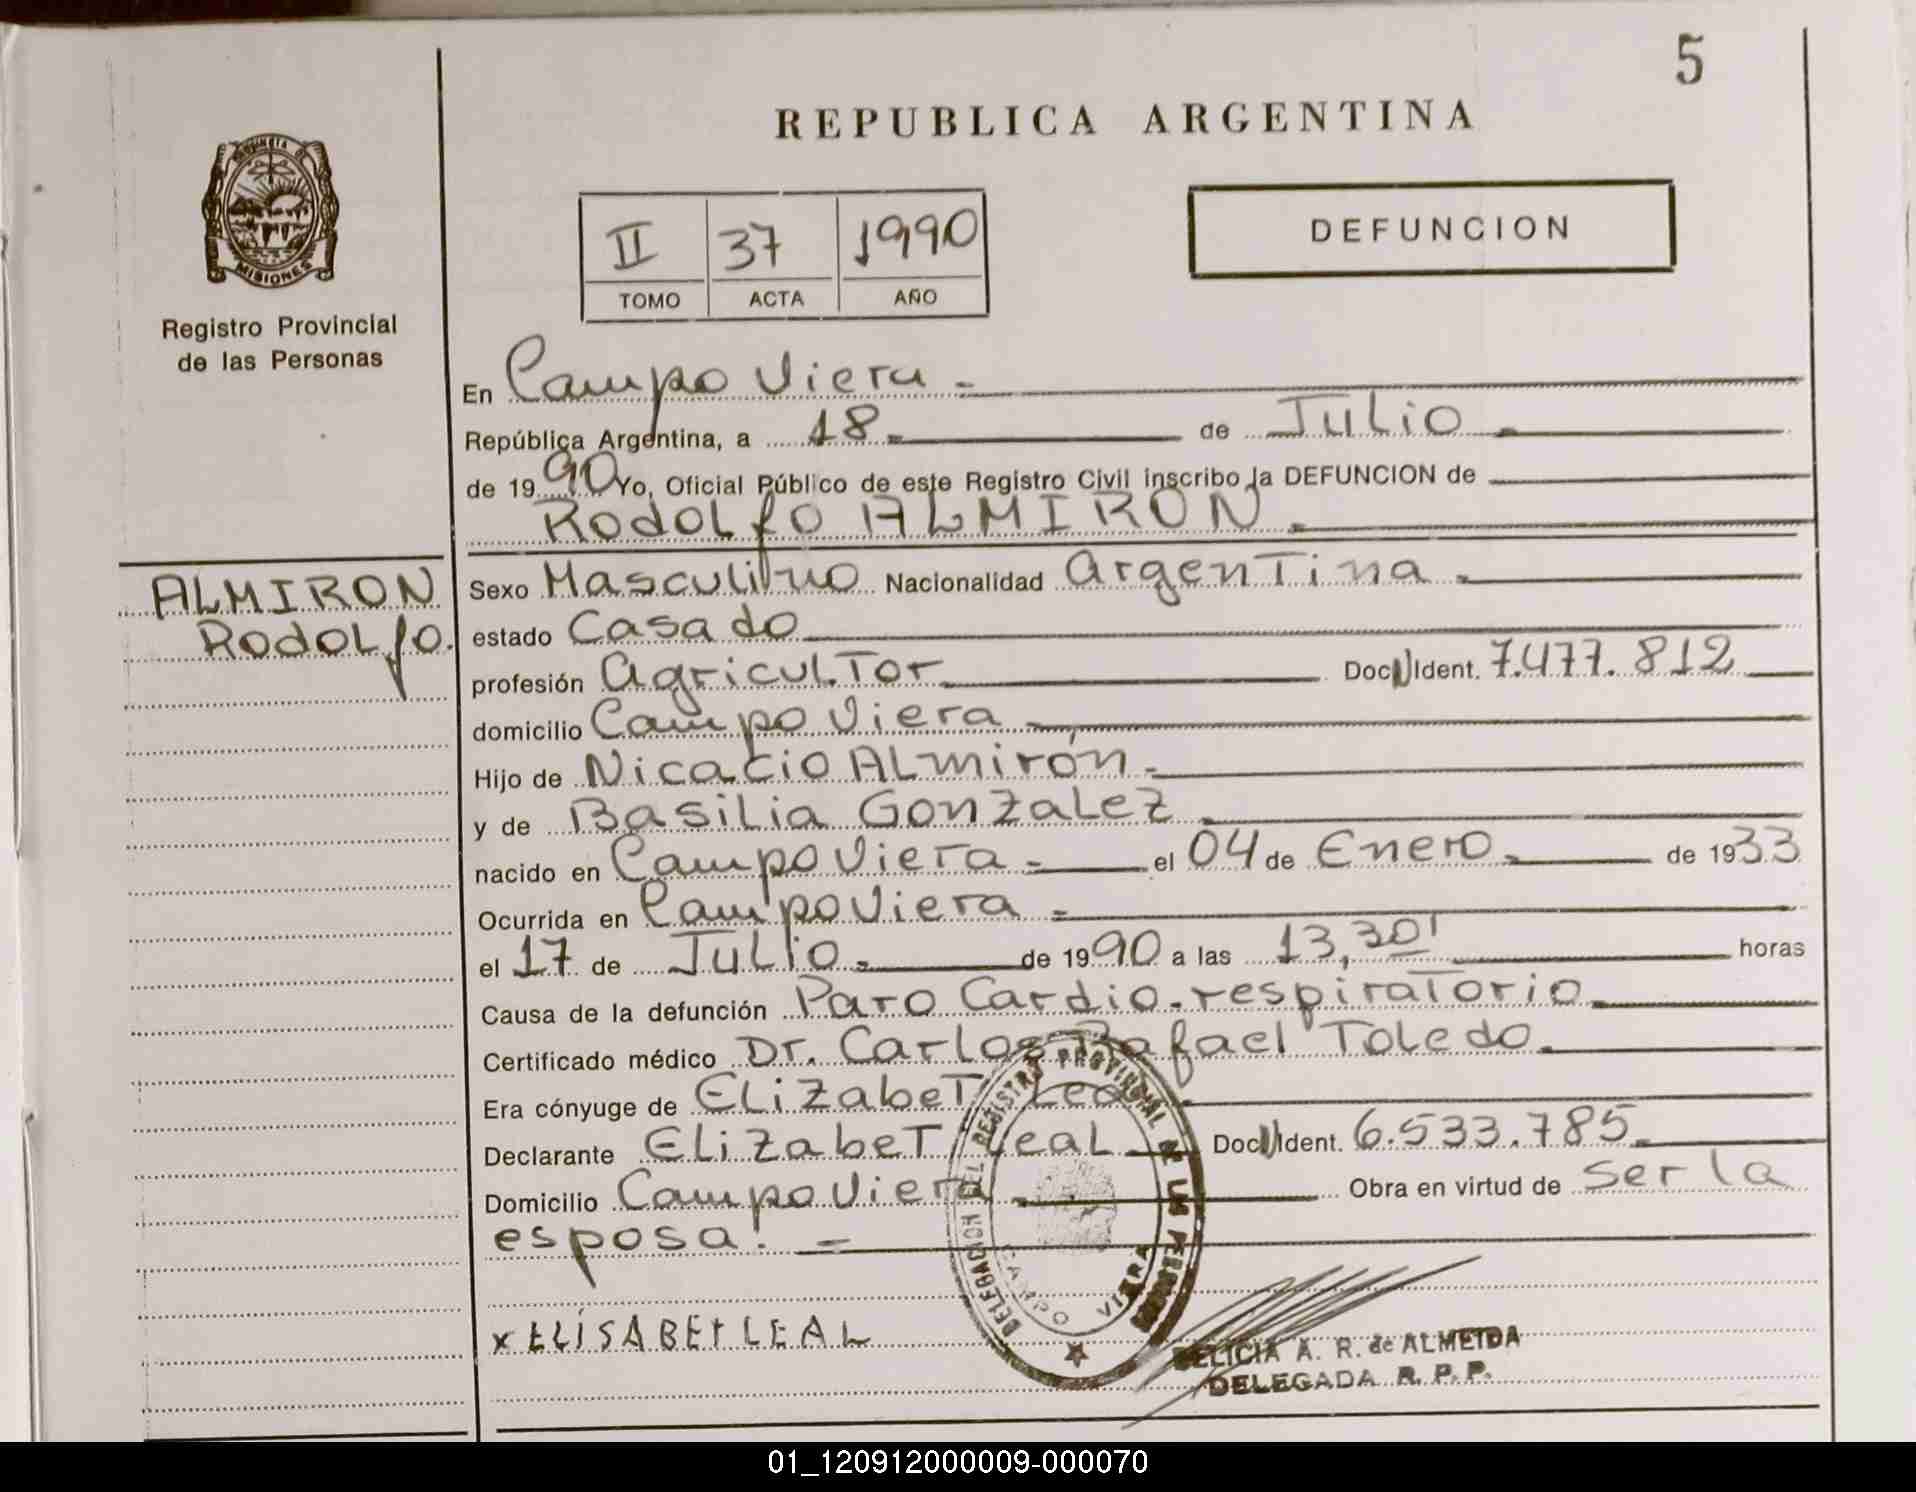 5
REPUBLICA ARGENTINA
PROVINCIA DE
MISIONES
Registro Provincial
de las Personas
II 37 1990
TOMO ACTA AÑO
DEFUNCION
En Campo Viera.-
República Argentina, a 18.- de Julio.-
de 1990 Yo, Oficial Público de este Registro Civil inscribo la DEFUNCION de
Rodolfo ALMIRON.-
ALMIRON
Rodolfo.
Sexo Masculino Nacionalidad Argentina.-
estado Casado
profesión Agricultor Doc. Ident. 7.477.812
domicilio Campo Viera.-
Hijo de Nicacio Almirón.-
y de Basilia Gonzalez
nacido en Campo Viera.- el 04 de Enero.- de 1933
Ocurrida en Campo Viera.-
el 17 de Julio.- de 1990 a las 13,30' horas
Causa de la defunción Paro Cardio-respiratorio
Certificado médico Dr. Carlos Rafael Toledo.
Era cónyuge de Elizabet Leal
Declarante Elizabet Leal Doc. Ident. 6.533.785.
Domicilio Campo Viera.- Obra en virtud de ser la
esposa.-
DELEGACION DEL REGISTRO PROVINCIAL DE LAS PERSONAS
CAMPO VIERA
x ELÍSABET LEAL
FELICIA A. R. de ALMEIDA
DELEGADA R. P. P.
01_120912000009-000070